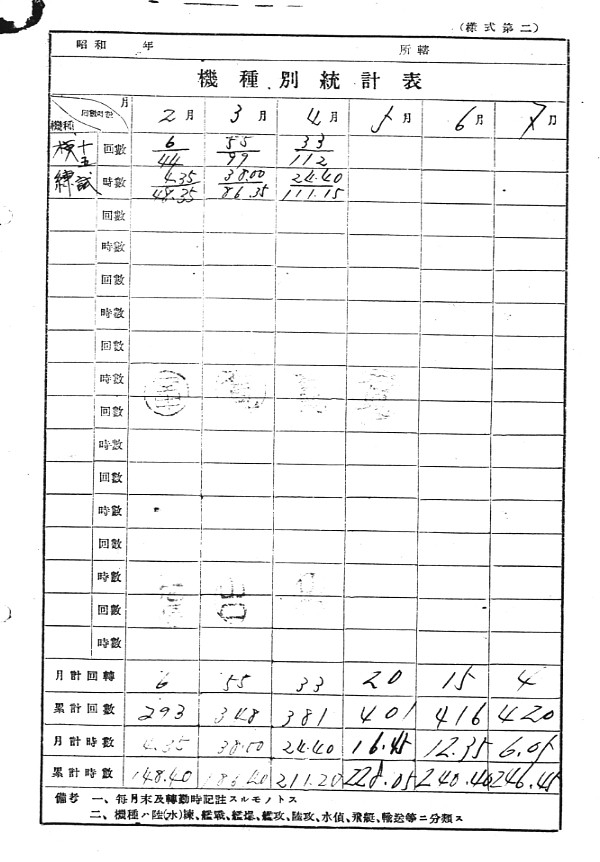 (様式第二)
昭和 年 所轄
機種別統計表
月
機種 2月 3月 4月 5月 6月 7月
十五試 回數 6 55 33
44 99 112
時數 4.35 38.00 24.40
48.35 86.35 111.15
回數
時數
回數
時數
回數
時數
回數
時數
回數
時數
回數
時數
回數
時數
月計回轉 6 55 33 20 15 4
累計回數 293 348 381 401 416 420
月計時數 4.35 38.00 24.40 16.45 12.35 6.05
累計時數 148.40 186.40 211.20 228.05 240.40 246.45
備考 一、毎月末及轉勤時記註スルモノトス
二、機種ハ陸(水)練、艦戰、艦爆、艦攻、陸攻、水偵、飛艇、輸送等ニ分類ス